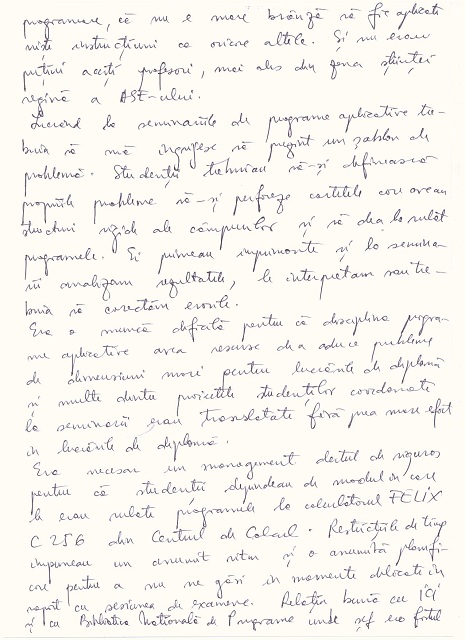 programare, că nu e mare brânză să fie aplicate
niște instrucțiuni ca oricare altele. Și nu erau
puțini acești profesori, mai ales din zona științei
regină a ASE-ului.
Lucrând la seminariile de programe aplicative tre-
buia să mă îngrijesc să pregătesc un șablon de
problemă. Studenții trebuiau să-și definească
propriile probleme să-și perforeze cartelele care aveau
structuri rigide ale câmpurilor și să dea la rulat
programele. Ei primeau imprimante și la semina-
rii analizam rezultatele, le interpretam sau tre-
buia să corectăm erorile.
Era o muncă dificilă pentru că disciplina progra-
me aplicative avea resurse de a aduce probleme
de dimensiuni mari pentru lucrările de diplomă
și multe dintre proiectele studenților coordonate
la seminarii erau translatate fără prea mare efort
în lucrările de diplomă.
Era necesar un management destul de riguros
pentru că studenții depindeau de modul în care
le erau rulate programele la calculatorul FELIX
C 256 din Centrul de Calcul. Restricțiile de timp
impuneau un anumit ritm și o anumită planifi-
care pentru a nu ne găsi în momente delicate în
raport cu sesiunea de examene. Relația bună cu ICI
și cu Biblioteca Națională de Programe unde șef era fostul